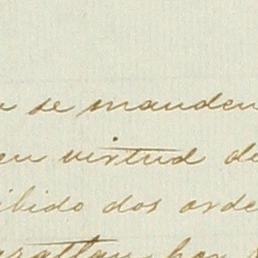 se manden
en virtud de
ibido dos orde
hoy